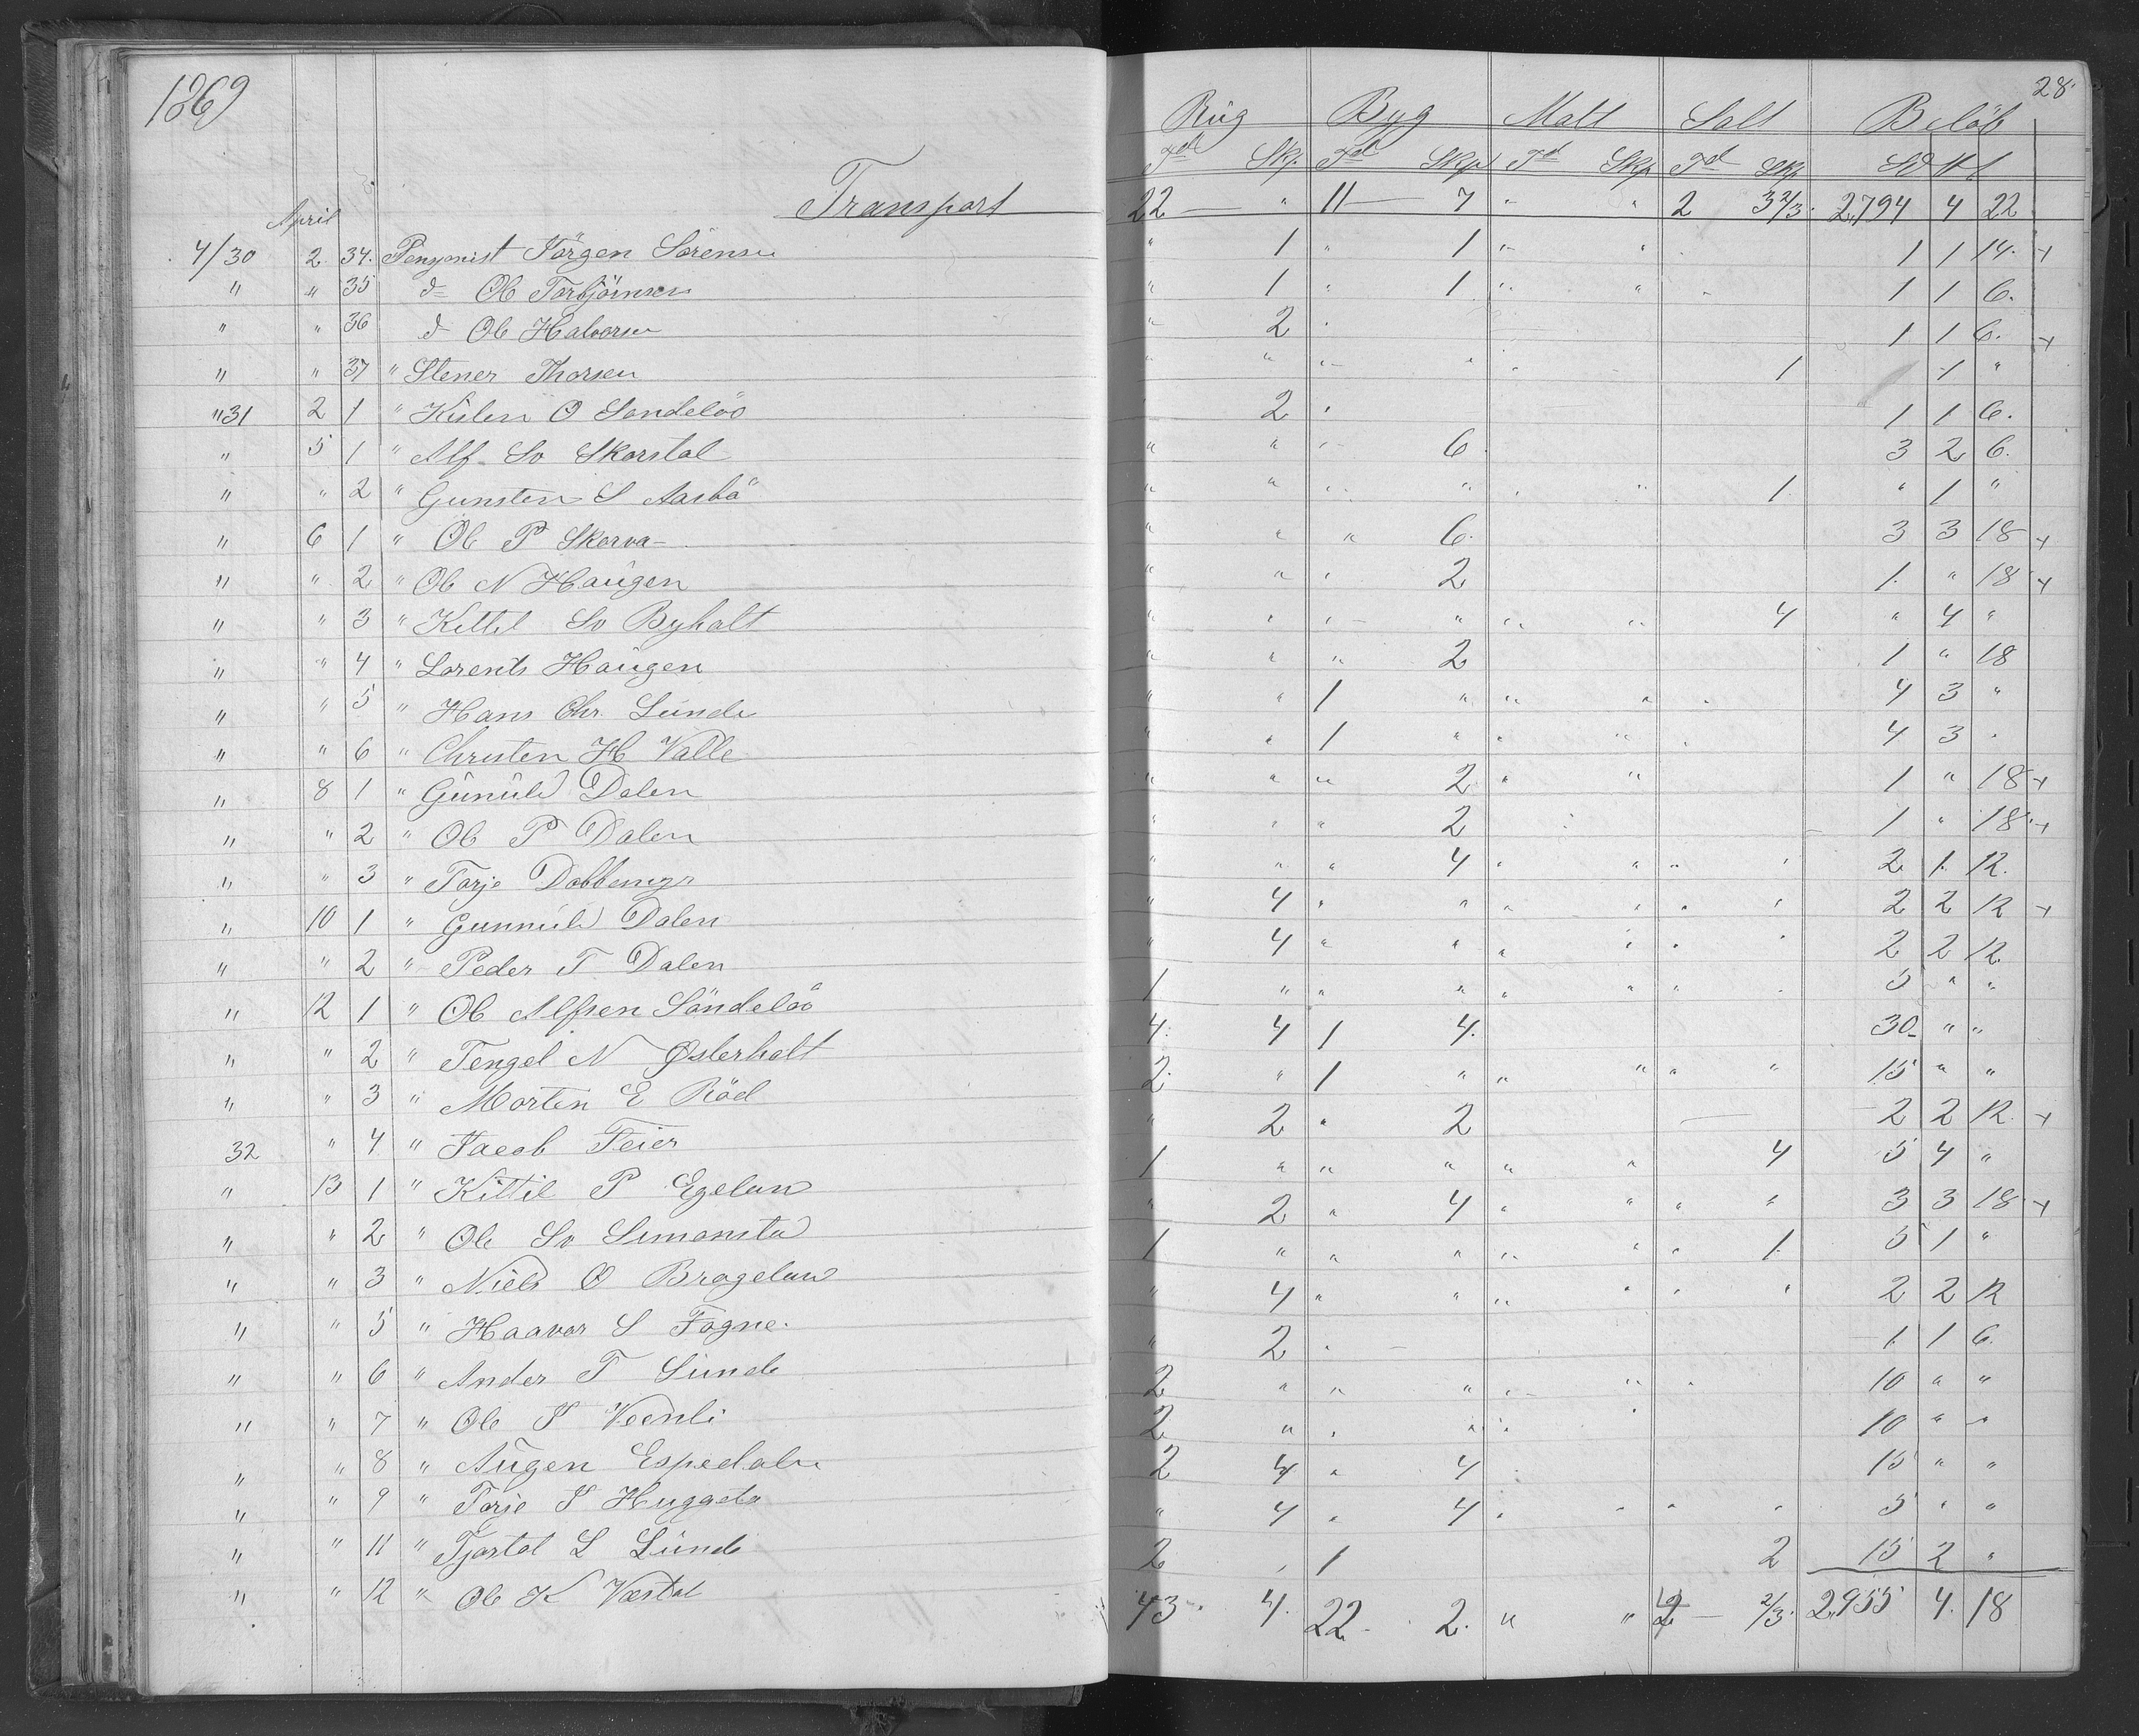 1869 28.
Rüg Byg Malt Salt Belöb
Td Skp. Td Skp Td Skp Td Skp
April Transport 22 — " 11 — 7 " " 2 3 2/3. 2,794 4 22
4/30 2 34. Pensjonist Jörgen Sörensen " 1 " 1 " " 1 1 14. +
" " 35 d= Ole Torbjörnsen " 1 " 1 " " 1 1 6.
" " 36 d= Ole Halvorsen " 2 1 1 6. +
" " 37 " Stener Thorsen " " " " 1 1 "
" 31 2 1 " O Sandelöö 2 1 1 6.
" 5 1 " Alf So Skorstøl " " " 6. 3 2 6.
" " 2 " Gunsten S Aasbö " " " " 1. " 1 "
" 6 1 " Ole P Skorva " " " 6. 3 3 18 +
" " 2 " Ole N Haügen " " " 2 1. " 18 +
" " 3 " Kittel So Byholt " " " " " " 4 " 4 "
" " 4 " Lorents Haügen " " " 2 1 " 18
" " 5 " Hans Chr. Lünde " " 1 " " " 4 3 "
" " 6 " Christen H Valle " " 1 " " " 4 3 .
" 8 1 " Günüld Dalen " " " 2 " " 1 " 18 +
" " 2 " Ole P Dalen " " " 2 1 " 18. +
" " 3 " Torje Dobbemyr " " " 4 " " " " 2 1. 12.
" 10 1 " Gunnüld Dalen " 4 " " " " " " 2 2 12 +
" " 2 " Peder T Dalen " 4 " " " " " " 2 2 12.
" 12 1 " Ole Alfsen Söndelöö 1 " " " " " " 5 " "
" " 2 " Tengel N Østerholt 4. 4 1 4. 30 " "
" " 3 " Morten E Röed 2. " 1 " " " " " 15 " "
32 " 4 " Jacob Feier " 2 " 2 2 2 12. +
" 13 1 " Kittil P Egeland 1 " " " " " 4 5 4 "
" " 2 " Ole So Simonsta " 2 " 4 " " " " 3 3 18 +
" " 3 " Niels O Brageland 1 " " " " " " 1. 5 1 "
" " 5 " Haavor S Fogne. " 4 " " " " " " 2 2 12
" " 6 " Ander T Lünde " 2 1. 1 6.
" " 7 " Ole J 2 " " " " " 10 " "
" " 8 " Aügen Espedalen 2 " " " 10 " "
" " 9 " Torje J Huggeto 2 4 " 4 15 " "
" " 11 " Tjøstol L Lünde " 4 " 4 " " " " 5 " "
" " 12 " Ole K Vestøl 2 1 2 15 2 "
43. 4. 22. 2. " " 2 — 2/3. 2,955 4. 18